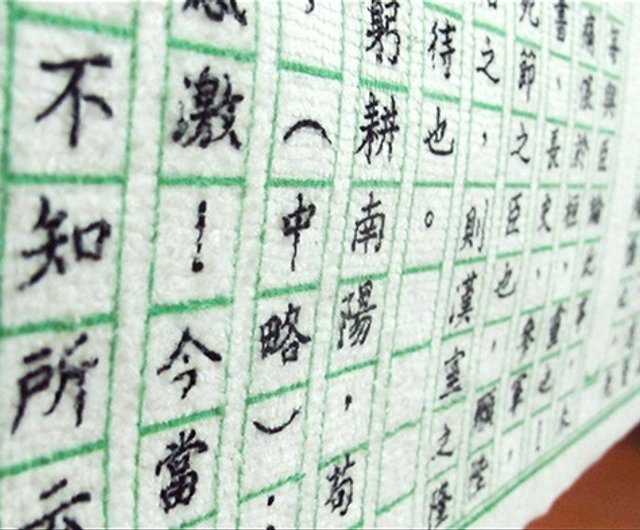 與臣論此事
於桓、靈之！
書、長史、參軍，
節之臣也，願陸
之，則漢室之隆
待也。
躬耕南陽，苟
，（中略）：
感激！今當
不知所云